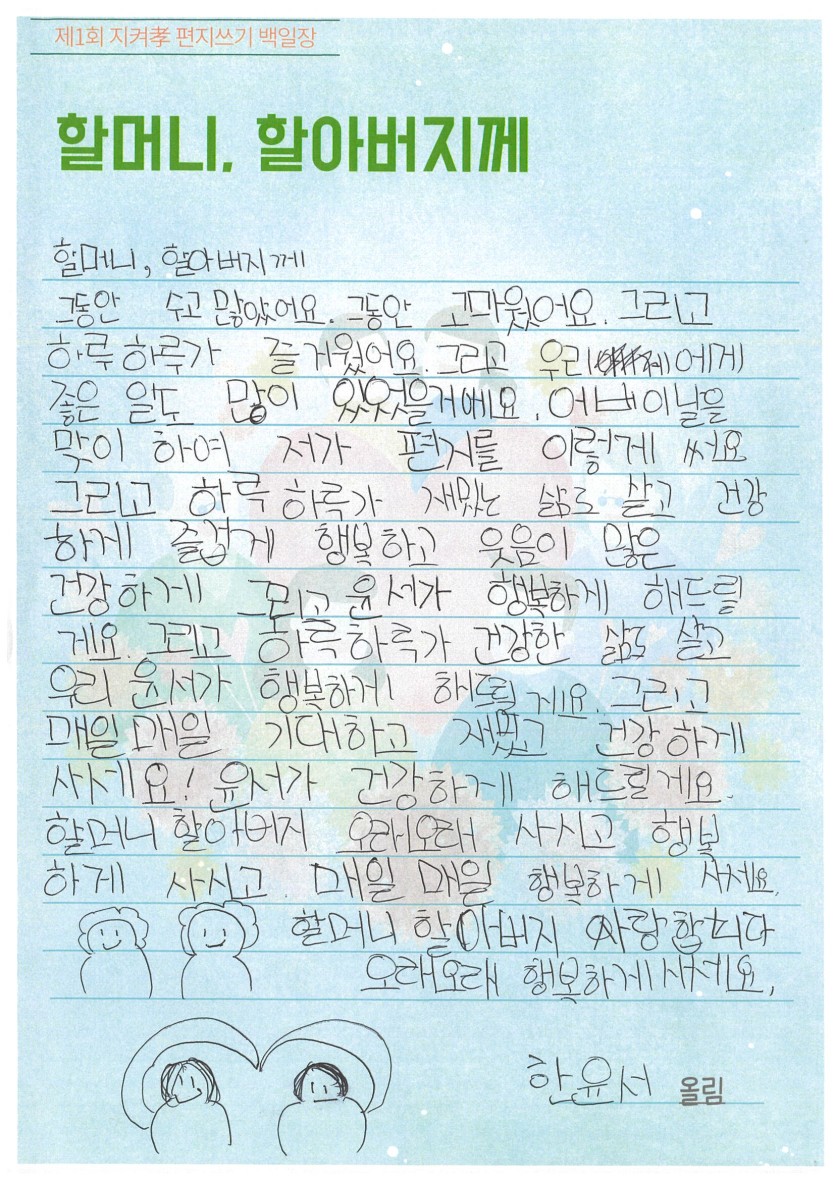 제1회 지켜孝 편지쓰기 백일장
할머니, 할아버지께
할머니, 할아버지께
그동안 수고 많았어요. 그동안 고마웠어요. 그리고
하루하루가 즐거웠어요. 그리고 우리 에게
좋은 일도 많이 있엇을거에요. 어버이날을
맞이 하여 저가 편지를 이렇게 써요
그리고 하룩 하룩가 재밌는 삶도 살고 건강
하게 즐겁게 행복하고 웃음이 많은
건강하게 그리고 윤서가 행복하게 해드릴
게요. 그리고 하륵하륵가 건강한 삶도 살고
우리 윤서가 행복하게 해드릴게요. 그리고
매일매일 기대하고 재밌고 건강하게
사세요! 윤서가 건강하게 해드릴게요.
할머니 할아버지 오래오래 사시고 행복
하게 사시고. 매일 매일 행복하게 사세요.
할머니 할아버지 사랑합니다
오래오래 행복하게 사세요,
한윤서 올림